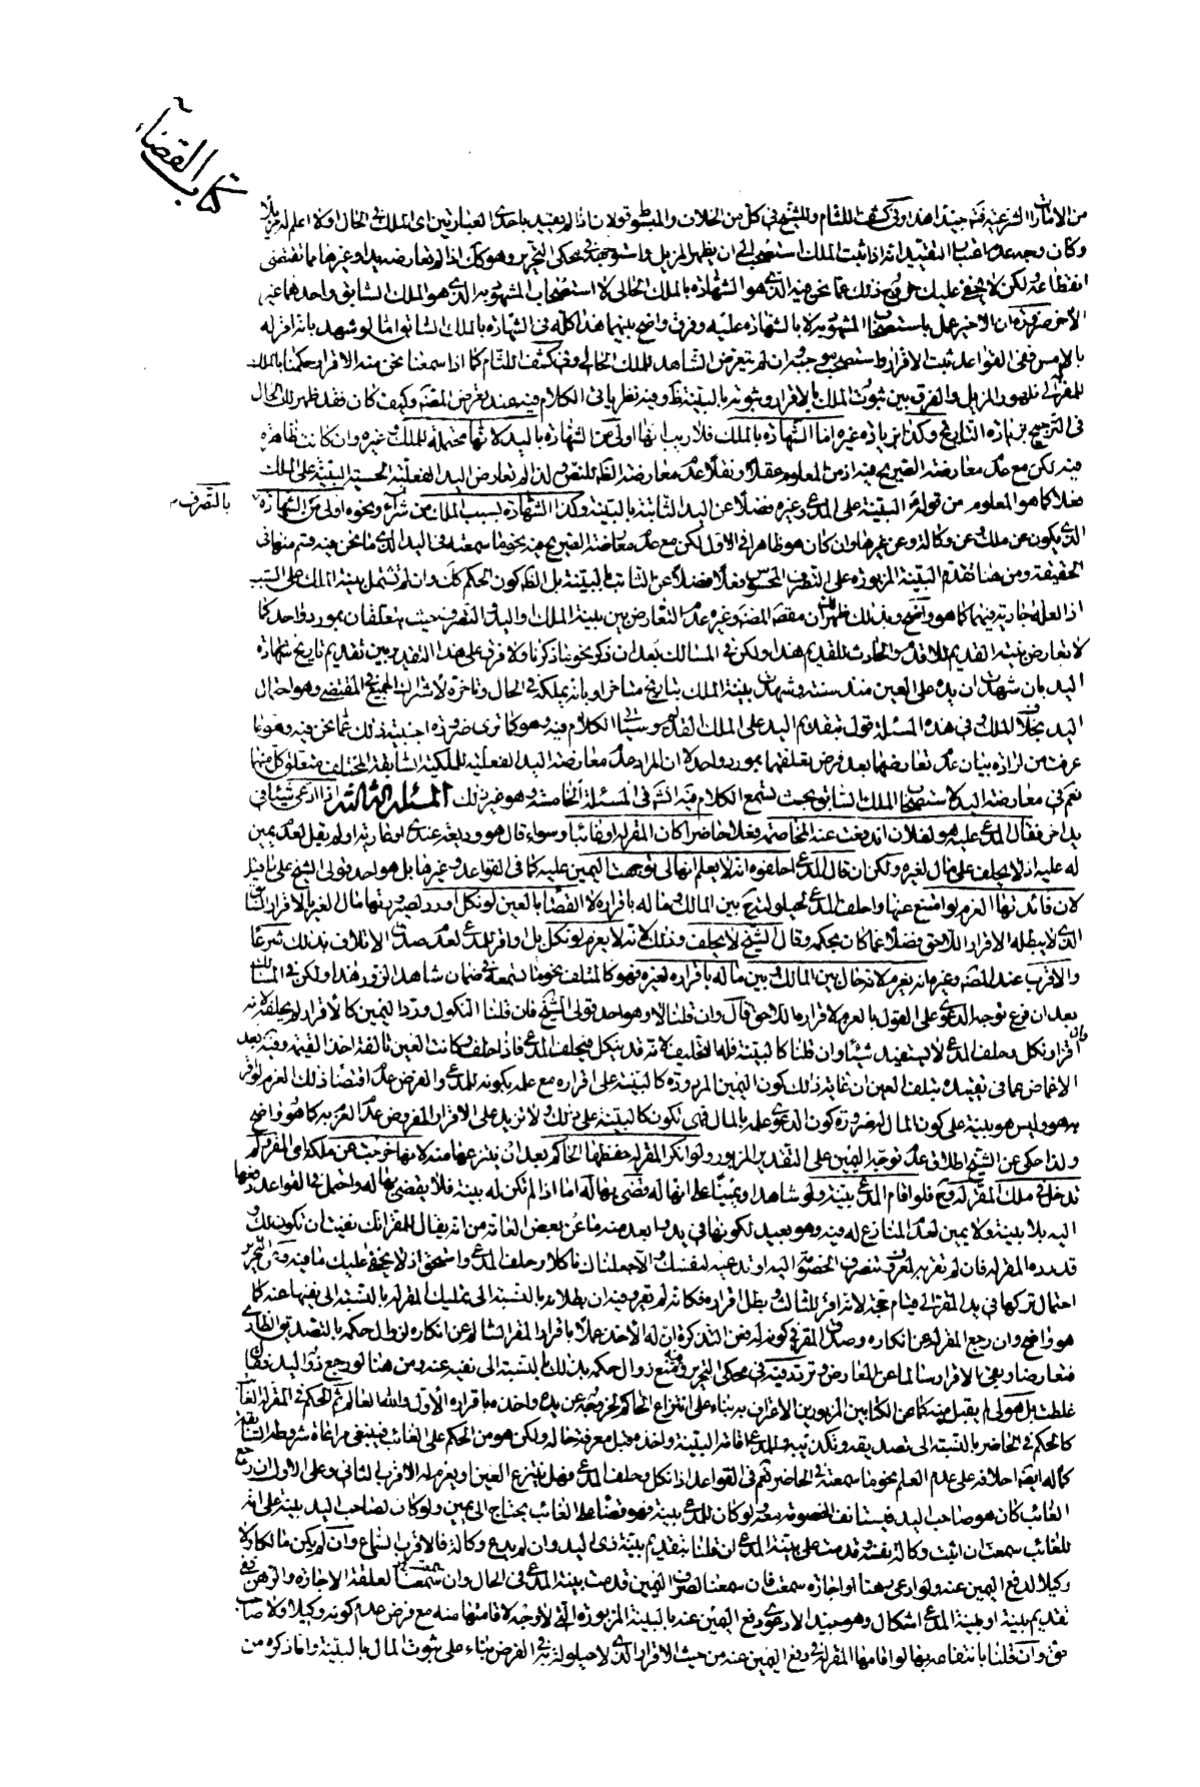 كتاب القضاء
من الامارات الشرعية فتم جيدا هذا وفي كشف اللثام وللشيخ في كل من الخلاف والمبسوط قولان اذا لم يقيد باحدى العبارتين اى الملك في الحال اولا اعلم له مزيلا
وكان وجه عدم اعتبار التقييد انه اذا ثبت الملك استصحب الى ان يظهر المزيل واستوجهه في محكى التحرير وهو كك اذا لم تعارضه يد او غيرها مما تقتضى
انقطاعه لكن لا يخفى عليك خروج ذلك عما نحن فيه الذي هو الشهادة بالملك الحالى لا استصحاب المشهود به الذي هو الملك السابق واحدهما غير
الآخر ضرورة ان الاخير عمل باستصحاب المشهود به لا بالشهادة عليه وفرق واضح بينهما هذا كله في الشهادة بالملك السابق اما لو شهد بانه اقر له
بالامس ففي القواعد ثبت الاقرار واستصحب موجبه وان لم يتعرض الشاهد للملك الحالى وفي كشف اللثام كما اذا سمعنا نحن منه الاقرار حكمنا بالملك
للمقر له الى ظهور المزيل والفرق بين ثبوت الملك بالاقرار وثبوته بالبينة ظ وفيه نظر ياتى الكلام فيه عند تعرض المصنف وكيف كان فقد ظهر لك الحال
في الترجيح بزيادة التاريخ وكذا بزيادة غيره اما الشهادة بالملك فلا ريب انها اولى من الشهادة باليد لانها محتملة للملك وغيره وان كانت ظاهرة
فيه لكن مع عدم معارضة الصريح فيه اذ من المعلوم عقلا ونقلا عدم معارضة الظاهر للنص ولذا لم تعارض اليد الفعلية الحسية البينة على الملك
فضلا كما هو المعلوم من قوله البينة على المدعى وغيره فضلا عن اليد الثابتة بالبينة وكذا الشهادة بسبب الملك من شراء ونحوه اولى من الشهادة
بالتصرف م
الذي يكون عن ملك وعن وكالة وعن غيرهما وان كان هو ظاهرا في الاول لكن مع عدم معارضة الصريح فيه بنحو ما سمعته في اليد الذي ما نحن فيه قسم منها في
الحقيقة ومن هنا تقدم البينة المزبورة على التصرف المحسوس فعلا فضلا عن الثابت بالبينة بل الظ كون الحكم كك وان لم تشمل بينة الملك على السبب
اذ العلة جارية فيهما كما هو واضح وبذلك ظهر لك ان مقصد المصنف وغيره عدم التعارض بين بينة الملك واليد والتصرف حيث يتعلقان بمورد واحد كما
لا تعارض بينة القديم للاقدم والحادث للقديم هذا ولكن في المسالك بعد ان ذكر نحو ما ذكرنا ولا فرق على هذا التقدير بين تقديم تاريخ شهادة
اليد بان شهدت ان يده على العين منذ سنة وشهدت بينة الملك بتاريخ متاخر او بانه يملكه في الحال وتاخره لاشتراك الجميع في المقتضى وهو احتمال
اليد بخلاف الملك وفي هذه المسئلة قول بتقديم اليد على الملك القديم وسياتى الكلام فيه وهو كما ترى ضرورة اجنبية ذلك عما نحن فيه وهو ما
عرفت من ارادة بيان عدم تعارضهما بعد فرض تعلقهما بمورد واحد لا ان المراد عدم معارضة اليد الفعلية للملكية السابقة المختلف متعلق كل منهما
نعم في معارضة اليد لاستصحاب الملك السابق بحث تسمع الكلام فيه انشاء الله في المسئلة الخامسة وهو غير ذلك المسئلة الثالثة اذا ادعى شيئا في
يد اخر فقال المدعى عليه هو لفلان اندفعت عنه المخاصمة فعلا حاضرا كان المقر له او غائبا وسواء قال هو وديعة عندى او عارية او لم يقل لعدم يمين
له عليه اذ لا يحلف على مال لغيره ولكن ان قال المدعى احلفوه انه لا يعلم انها لى توجهت اليمين عليه كما في القواعد وغيرها بل هو احد قولى الشيخ على ما قيل
لان فائدتها الغرم لو امتنع عنها واحلف المدعى لحيلولته بين المالك وماله باقراره لا القضاء بالعين لو نكل او رد لصيرورتها مال لغيره بالاقرار السابق
الذي لا يبطله الاقرار اللاحق فضلا عما كان بحكمه وقال الشيخ لا يحلف وذلك لانه لا يغرم لو نكل بل او اقر للمدعى لعدم صدق الاتلاف بذلك شرعا
والاقرب عند المصنف وغيره انه يغرم لانه حال بين المالك وبين ماله باقراره لغيره فهو كالمتلف بنحو ما سمعته في ضمان شاهد الزور هذا ولكن في المسالك
بعد ان فرع توجه الدعوى على القول بالغرم لاقراره باللاحق قال وان قلنا لا وهو احد قولى الشيخ فان قلنا النكول ورد اليمين كالاقرار لم يحلفه لانه
وان اقر او نكل وحلف المدعى لا يستفيد شيئا وان قلنا كالبينة فله التحليف لانه قد ينكل فيحلف المدعى فاذا حلف وكانت العين تالفة اخذ القيمة وفيه بعد
الاغماض عما في تقييده بتلف العين ان غاية ذلك كون اليمين المردودة كالبينة على اقراره مع علمه بكونه للمدعى والفرض عدم اقتضاء ذلك الغرم لو اقر
به هو وليس هو بينة على كون المال له ضرورة كون الدعوى علمه بالمال فهى تكون كالبينة على ذلك ولا تزيد على الاقرار المفروض عدم الغرم به كما هو واضح
ولذا حكى عن الشيخ اطلاق عدم توجه اليمين على التقدير المزبور ولو انكر المقر له حفظها الحاكم بعد ان ينتزعها منه لانها خرجت عن ملكه اى المقر ولم
تدخل في ملك المقر له وح فلو اقام المدعى بينة ولو شاهدا ويمينا على انها له قضى بها له اما اذا لم تكن له بينة فلا يقضى بها له واحتمل في القواعد دفعها
اليه بلا بينة ولا يمين لعدم المنازع له فيه وهو بعيد لكونها في يد وابعد منه ما عن بعض العامة من انه يقال للمقر انك نفيت ان تكون لك و
قد رده المقر له فان لم تقر به لمعروف تنصرف الخصومة اليه او تدعيه لنفسك والا جعلناك ناكلا وحلف المدعى واستحق اذ لا يخفى عليك ما فيه وفي التحرير
احتمال تركها في يد المقر الى قيام حجة لانه اقر للثالث وبطل اقراره فكانه لم يقر وفيه ان بطلانه بالنسبة الى تمليك المقر له لا بالنسبة الى نفيها عنه كما
هو واضح وان رجع المقر له عن انكاره وصدق المقر في كونه له فعن التذكرة ان له الاخذ عملا باقرار المقر السالم عن انكاره لزوال حكمه بالتصديق الطارئ
فتعارضا وبقى الاقرار سالما عن المعارض وتردد فيه في محكى التحرير وقد يمنع زوال حكمه بذلك بالنسبة الى نفيه عنه ومن هنا لو رجع ذو اليد فقال
غلطت بل هو لى لم يقبل منه كما عن الكتابين المزبورين الاعتراف به بناء على انتزاع الحاكم لخروجه عن يده واخذه باقراره الاول والله العالم ثم الحكم في المقر له الغائب
كالحكم في الحاضر بالنسبة الى تصديقه وتكذيبه وللمدعى اقامة البينة واخذه قبل معرفة حاله ولكن هو من الحكم على الغائب فينبغى مراعاة شروطه السابقة
كما له ايضا احلافه على عدم العلم بنحو ما سمعته في الحاضر نعم في القواعد اذا نكل وحلف المدعى فهل ينتزع العين او يغرم له الاقرب الثاني وعلى الاول ان رجع
الغائب كان هو صاحب اليد فيستانف الخصومة معه ولو كان للمدعى بينة فهو قضاء على الغائب يحتاج الى يمين ولو كان لصاحب اليد بينة على انه
للغائب سمعت ان اثبت وكالة نفسه وقدمت على بينة المدعى ان قلنا بتقديم بينة ذى اليد وان لم يدع وكالة فالاقرب السماع وان لم يكن مالكا ولا
وكيلا لدفع اليمين عنه ولو ادعى رهنا او اجارة سمعت فان سمعنا لصرف اليمين قدمت بينة المدعى في الحال وان سمعت لعلقة الاجارة والرهن ففى
تقديم بينته او بينة المدعى اشكال وهو جيد الا دعوى دفع اليمين عنه بالبينة المزبورة التي لا وجه لاقامتها منه مع فرض عدم كونه وكيلا ولا صاحب
حق وان قلنا بانتفاعه بها لو اقامها المقر له في دفع اليمين عنه من حيث الاقرار الذي لا حيلولة به في الفرض بناء على ثبوت المال بالبينة واما ذكره من